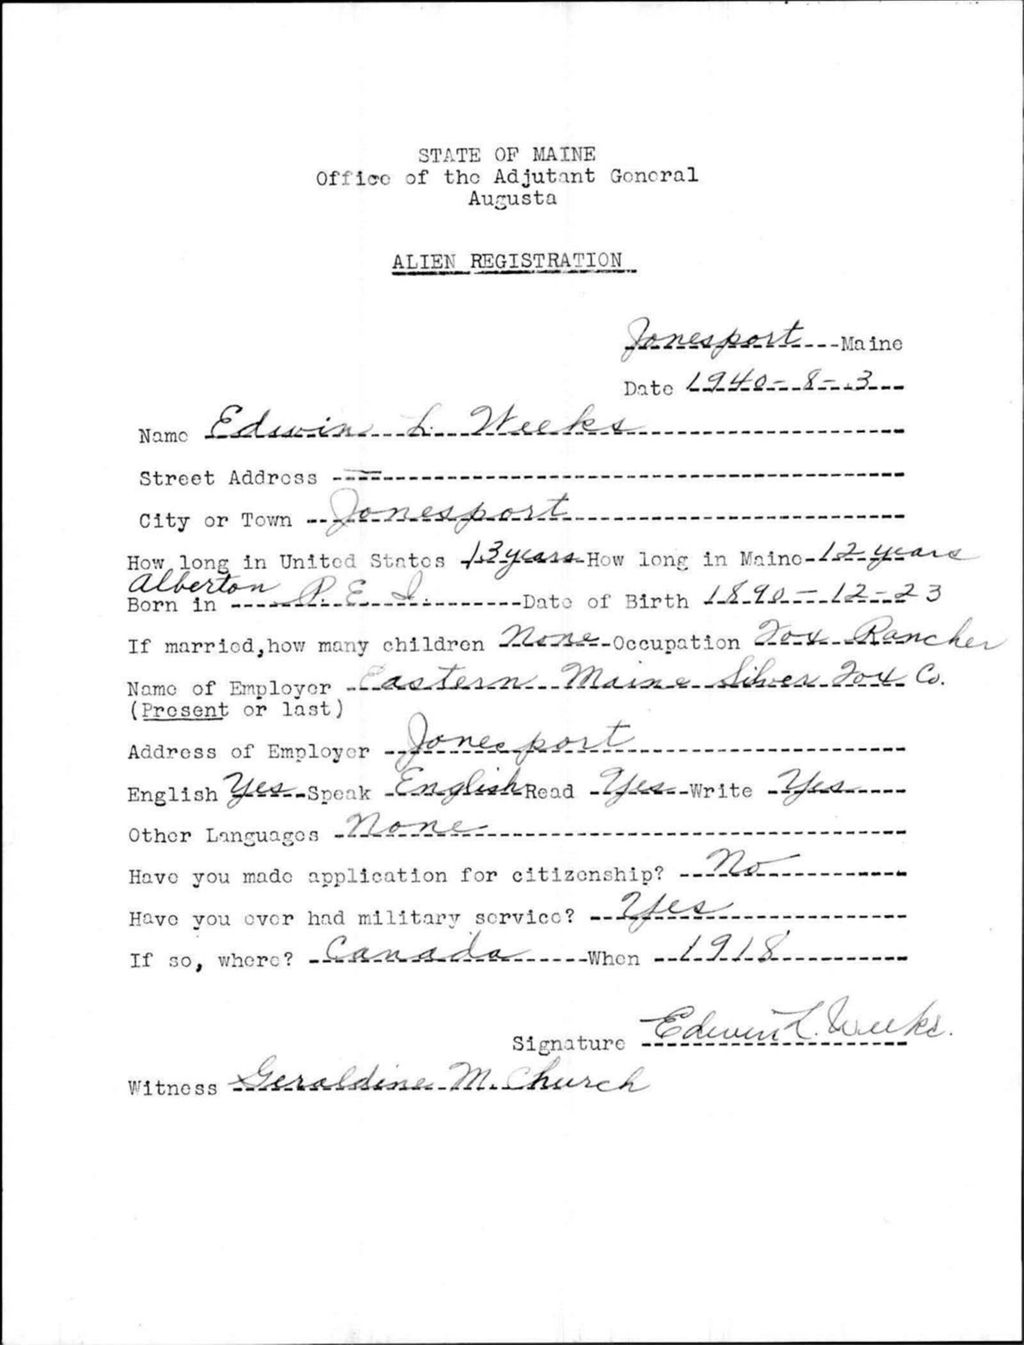 STATE OF MAINE
Office of the Adjutant General
Augusta
ALIEN REGISTRATION
Jonesport Maine
Date 1940-8-3
Name Edwin L. Weeks
Street Address —
City or Town Jonesport
How long in United States 13 years How long in Maine 12 years
Alberton
Born in P. E. I. Date of Birth 1890-12-23
If married, how many children None Occupation Fox Rancher
Name of Employer Eastern Maine Silver Fox Co.
(Present or last)
Address of Employer Jonesport
English Yes Speak English Read Yes Write Yes
Other Languages None
Have you made application for citizenship? No
Have you ever had military service? Yes
If so, where? Canada When 1918
Signature Edwin L. Weeks.
Witness Geraldine M. Church